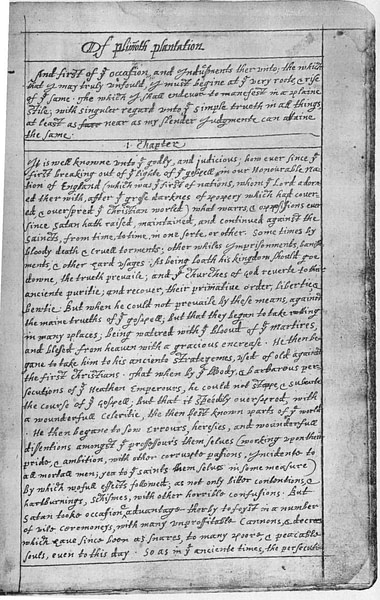 Of plimoth plantation.
And first of yᵉ occasion, and Indusments ther unto; the which
that I may truly unfould, I must begine at yᵉ very roote & rise
of yᵉ same. The which I shall endevor to manefest in a plaine
stile; with singuler regard unto yᵉ simple trueth in all things,
at least as far near as my slender Judgmente can attaine
the same.
1. Chapter
It is well knowne unto yᵉ godly, and judicious; how ever since yᵉ
first breaking out of yᵉ lighte of yᵉ gospell, in our Honourable na-
tion of England (which was yᵉ first of nations, whom yᵉ Lord adorn-
ed ther with, after yᵉ grose darknes of popery which had cover-
ed, & overspred yᵉ Christian world) what warrs, & oppossitions ever
since, satan hath raised, maintained, and continued against the
saincts, from time, to time, in one sorte, or other. Some times by
bloody death & cruell torments; other whiles Imprisonments, banish-
ments, & other hard usages. As being loath his kingdom should goe
downe, the trueth prevaile; and yᵉ Churches of God reverte to their
anciente puritie; and recover, their primative order, libertie, &
bewtie. But when he could not prevaile by these means, against
the maine trueths of yᵉ gospell; but that they began to take rooting
in many places; being watered with yᵉ blooud of yᵉ martires,
and blessed from heaven with a gracious encrease. He then be-
gane to take him to his anciente strategemes, used of old against
the first Christians. That when by yᵉ bloody, & barbarous per-
secutions of yᵉ Heathen Emperours, he could not stoppe, & subverte
the course of yᵉ Gospell; but that it speedily overspred, with
a wounderfull celeritie, the then best known parts of yᵉ world.
He then began to sow errours, heresies, and wounderfull
dissentions amongst yᵉ professours them selves (working upon their
pride, & ambition, with other corrupte passions, Incidente to
all mortall men; yea to yᵉ saints them selves in some measure)
By which wofull effects followed; as not only bitter contentions, &
hartburnings, schismes, with other horrible confusions. But
Satan tooke occasion & advantage therby to foyst in a number
of vile ceremoneys, with many unproffitable Cannons, & decrees
which have since been as snares, to many poore, & peaceable
souls, even to this day. So as in yᵉ anciente times, the persecutio